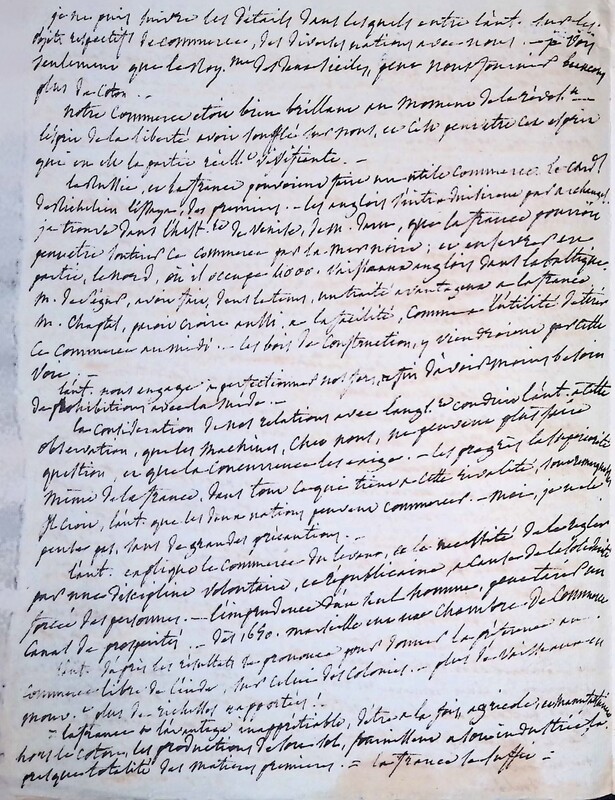 je ne puis suivre les détails dans lesquels entre l'aut. sur les
objets respectifs de commerce, des diverses nations avec nous. — je vois
seulement que le Roy.me des deux Siciles, peut nous fournir beaucoup
plus de coton. —
notre commerce etoit bien brillant au moment de la révol.on —
l'esprit de la liberté avoit soufflé sur nous, et c'est peut etre cet esprit
que en est la partie vivifiante. —
la Russie, et la france pouvoient faire un utile commerce. Le card.
de Richelieu l'essaya, des premiers. — les anglois
je trouve dans l'hist. de Venise, de m. Daru, que la france pourroit
peut etre tout ce commerce par la mer noire; et en
partie, le nord, où il occupe 4000. vaisseaux anglois dans la baltique
m. de Ségur, avoit fait, dans le tems, un traité avantageux a la france
m. Chaptal, paroit croire aussi, a la facilité, comme a l'utilité d'attirer
ce commerce au midi. — les bois de construction, y viendroient par cette
voie. —
l'aut. nous engage a perfectionner nos fers, afin d'avoir moins besoin
de prohibitions avec la Suède. —
la considération de nos relations avec l'angl.re conduit l'aut. a cette
observation, que les machines, chez nous, ne peuvent plus faire
question, et que la concurrence les exige. — les progrès la supériorité
même de la france, dans tout ce qui tient a cette rivalité, sont remarquables
Il croit, l'aut. que les deux nations peuvent commercer. — moi, je ne le
pense pas, sans de grandes précautions. —
l'aut. explique le commerce du levant, et la nécessité de le regler
par une discipline volontaire, et républicaine, a cause de la solidarité
forcée des personnes. — l'imprudence d'un seul homme, peut tarir un
canal de prosperités. — dès 1650. marseille eut une chambre de commerce
l'aut. d'après les résultats se prononce pour donner la préférence au
commerce libre de l'inde, sur celui des colonies. — plus de vaisseaux en
mouv.t plus de richesses rapportées!
— la france a l'avantage inappréciable, d'etre a la fois, agricole, et manufacturière
hors le coton, les productions de son sol, fournissent a son industrie la
presque totalité des matieres premieres. — la france la suffit —